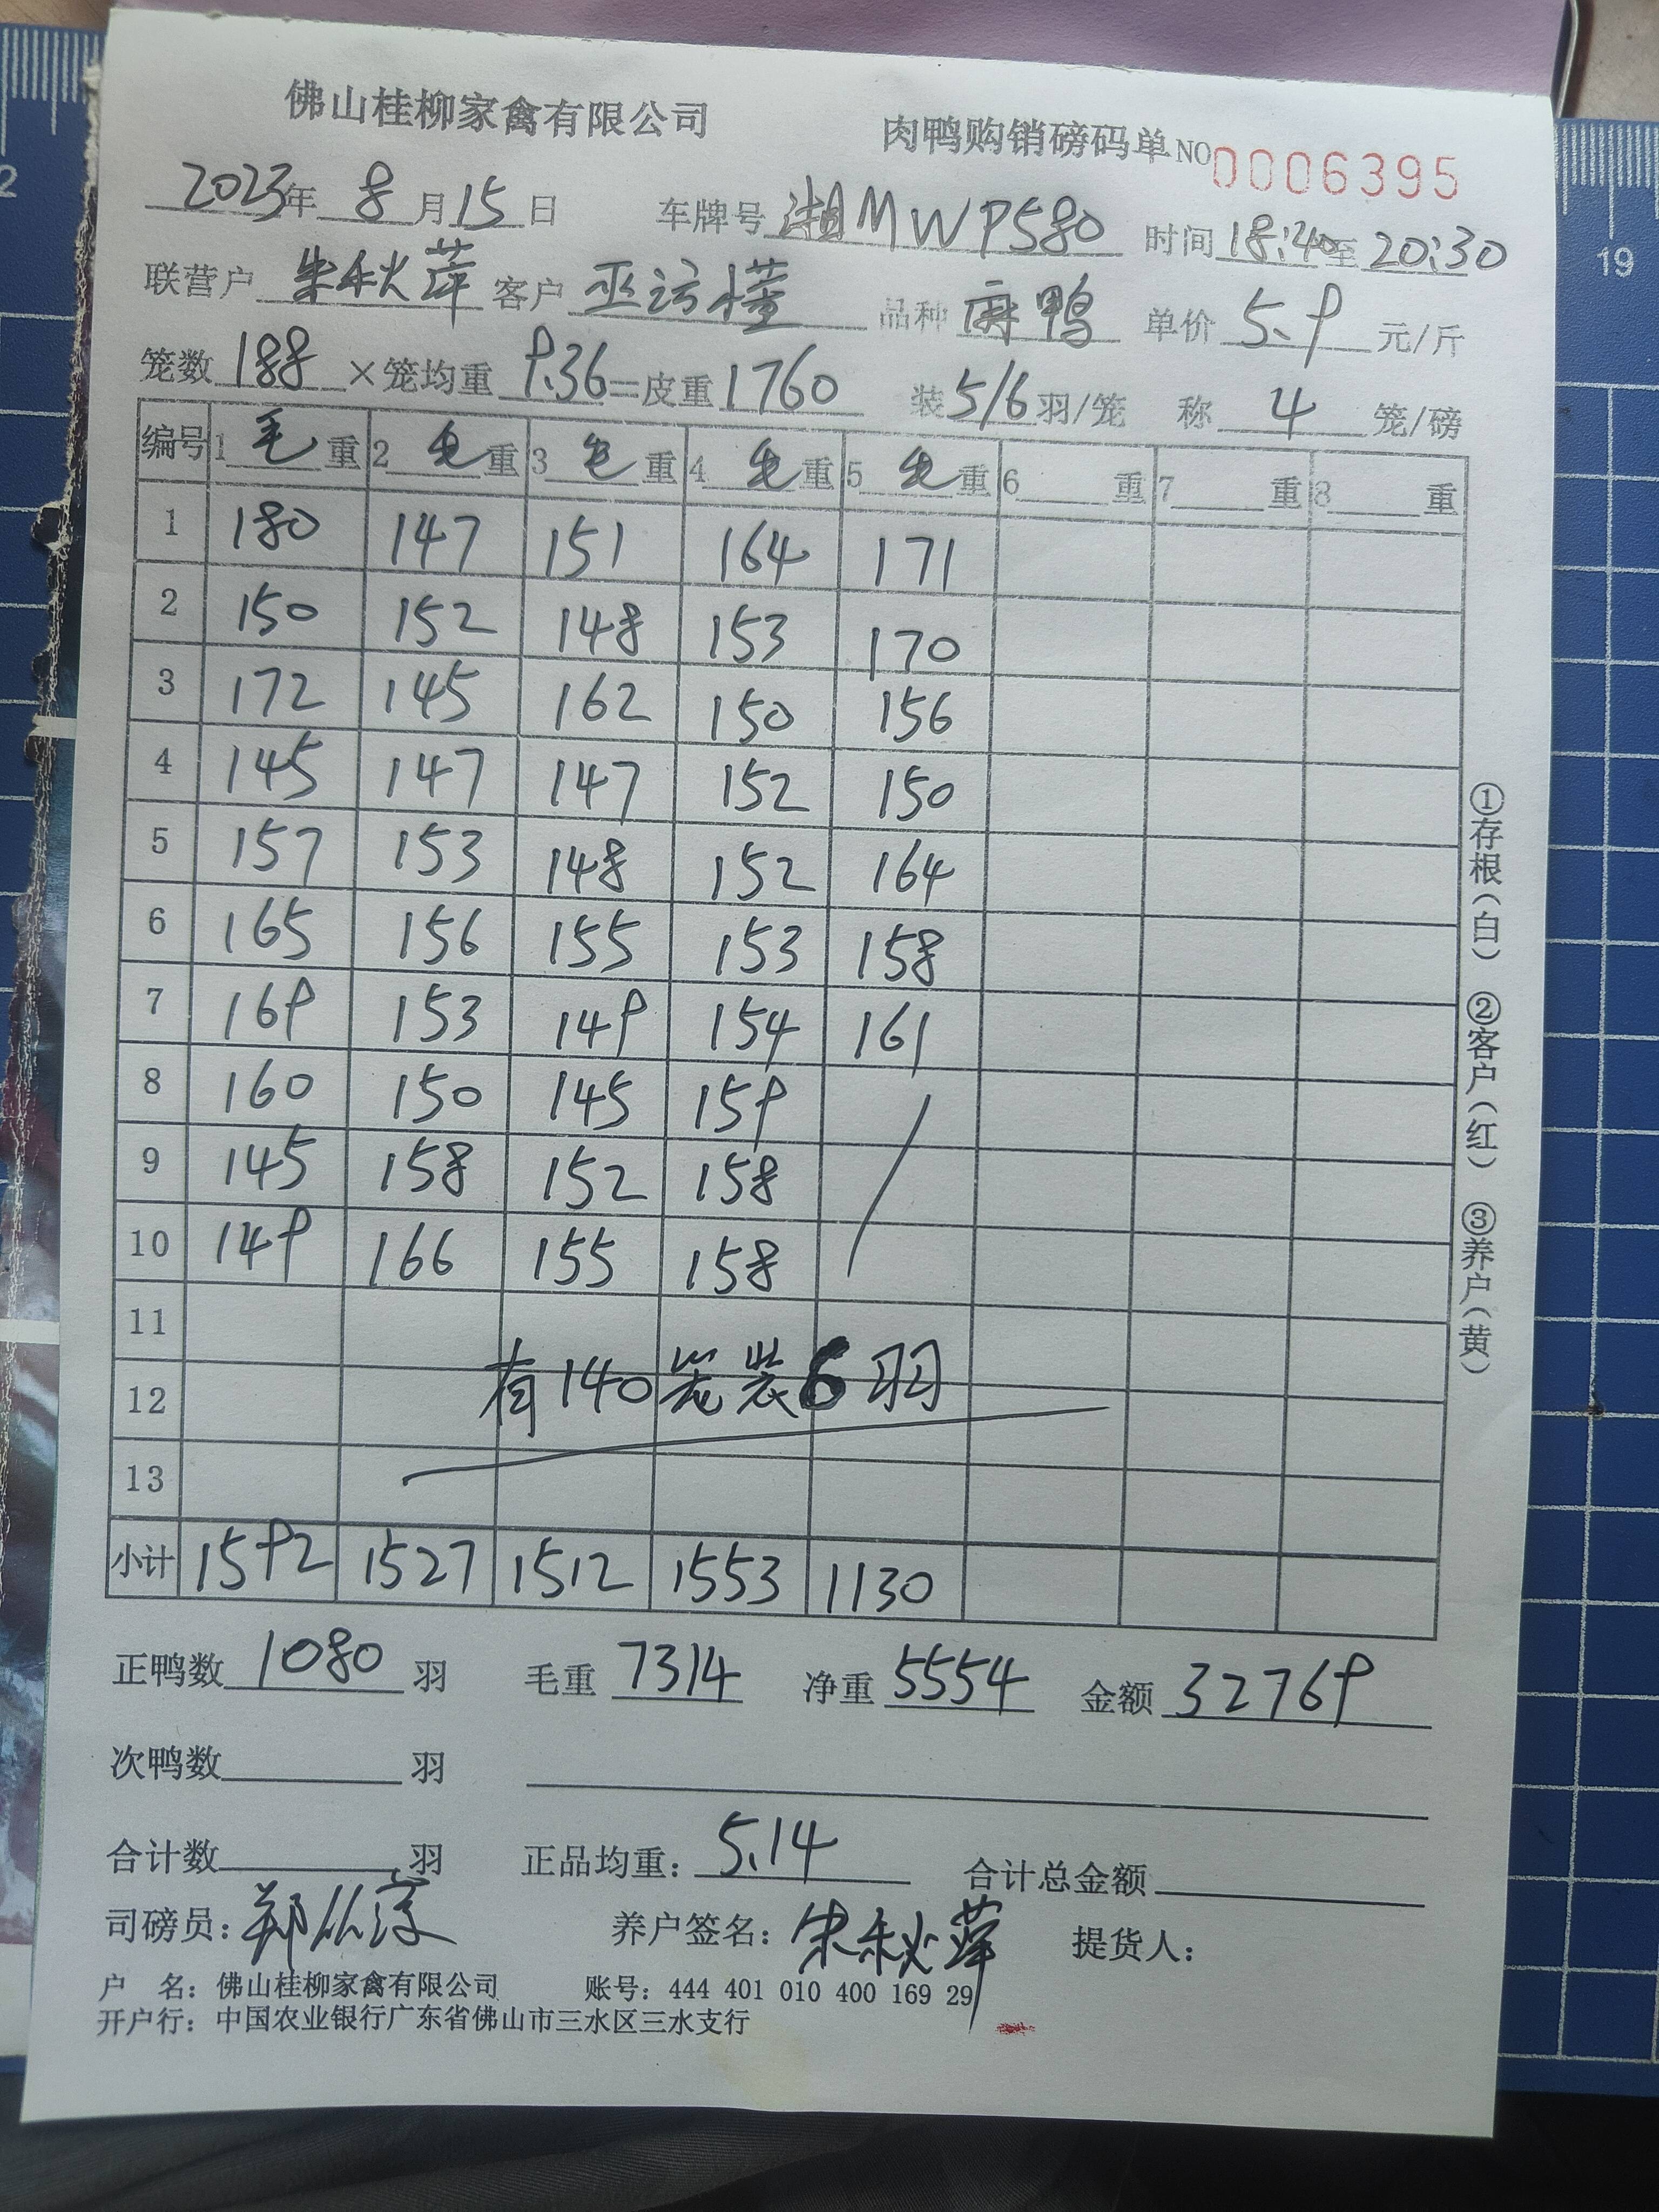 佛山桂柳家禽有限公司 肉鸭购销磅码单 NO 0006395
2023年 8 月 15 日 车牌号 湘MWP580 时间 18:40 至 20:30
联营户 朱秋萍 客户 巫访槿 品种 麻鸭 单价 5.9 元/斤
笼数 188 ×笼均重 9.36 =皮重 1760 装 5/6 羽/笼 称 4 笼/磅
编号 1 毛 重 2 毛 重 3 毛 重 4 毛 重 5 毛 重 6 重 7 重 8 重
1 180 147 151 164 171
2 150 152 148 153 170
3 172 145 162 150 156
4 145 147 147 152 150
5 157 153 148 152 164
6 165 156 155 153 158
7 169 153 149 154 161
8 160 150 145 159
9 145 158 152 158
10 149 166 155 158
11
12 有140笼装6羽
13
小计 1592 1527 1512 1553 1130
正鸭数 1080 羽 毛重 7314 净重 5554 金额 32769
次鸭数 羽
合计数 羽 正品均重: 5.14 合计总金额
司磅员: 郑 养户签名: 朱秋萍 提货人:
户 名: 佛山桂柳家禽有限公司 账号: 444 401 010 400 169 29
开户行: 中国农业银行广东省佛山市三水区三水支行
①存根(白) ②客户(红) ③养户(黄)
19
2